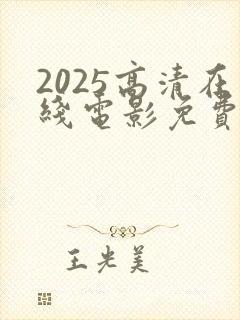 2025高清在
綫電影免費
王光美